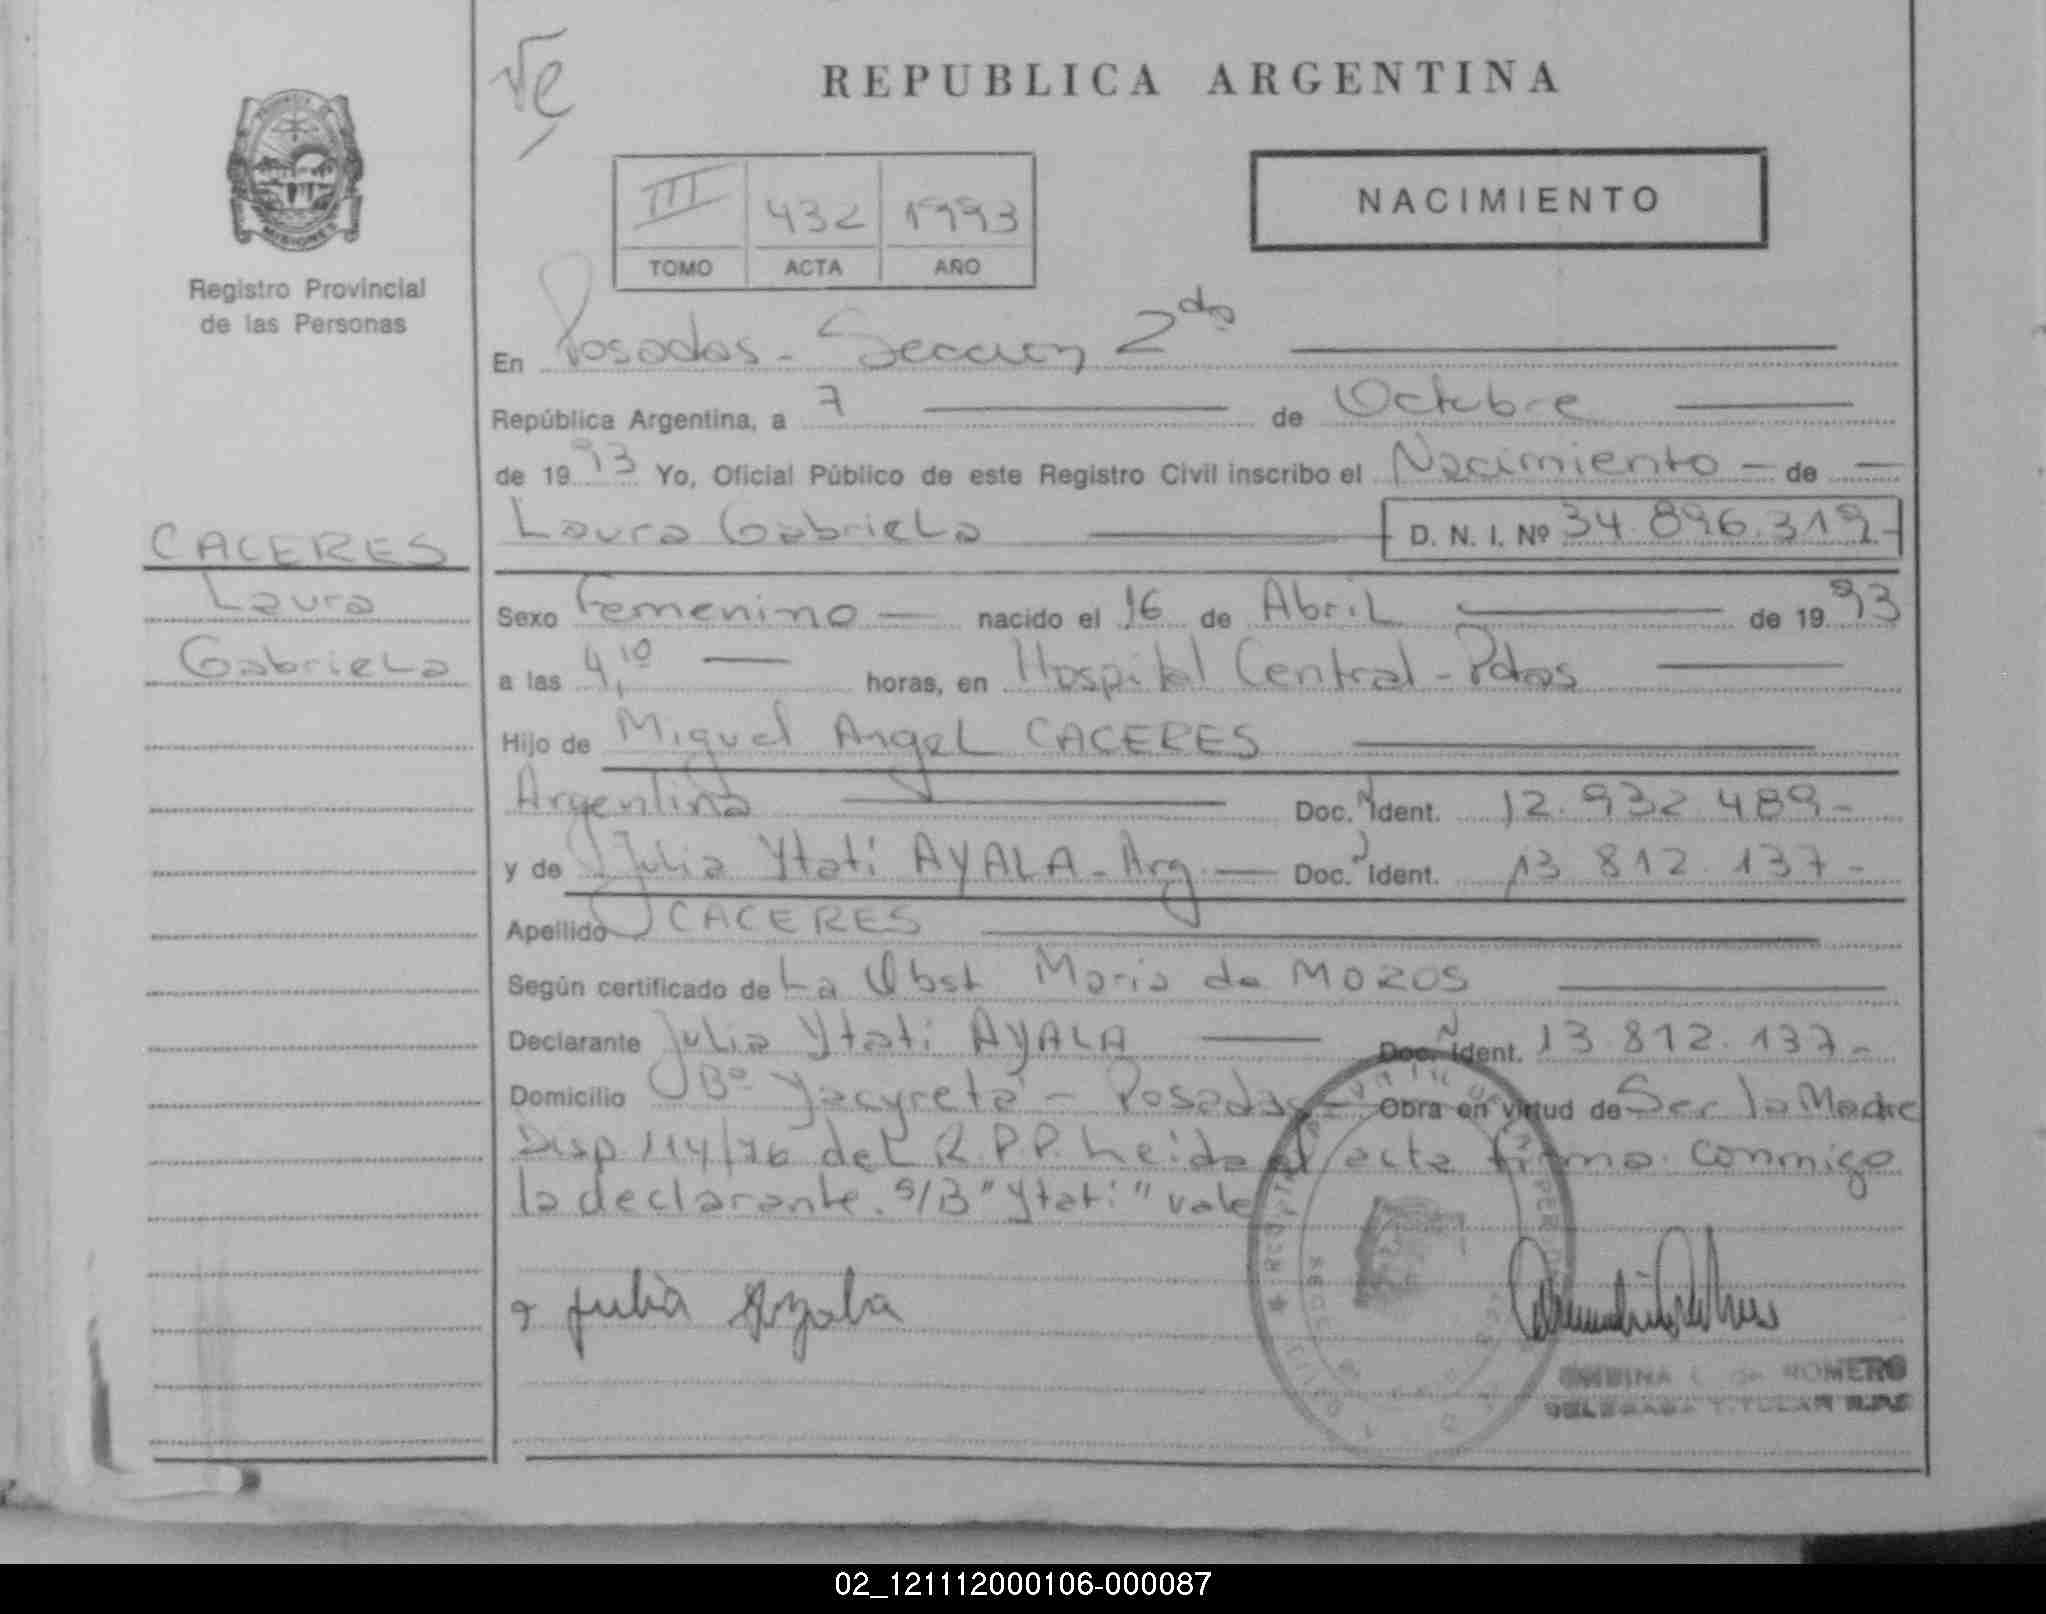 REPUBLICA ARGENTINA
NACIMIENTO
III 432 1993
TOMO ACTA AÑO
MISIONES
Registro Provincial
de las Personas
CACERES
Laura
Gabriela
En Posadas - Seccion 2da
República Argentina, a 7 de Octubre
de 1993 Yo, Oficial Público de este Registro Civil inscribo el Nacimiento - de
Laura Gabriela D. N. I. Nº 34.896.319-
Sexo Femenino nacido el 16 de Abril de 1993
a las 4,10 horas, en Hospital Central - Pdas
Hijo de Miguel Angel CACERES
Argentina Doc. Ident. 12.932.489-
y de Julia Ytati AYALA - Arg. Doc. Ident. 13.812.137-
Apellido CACERES
Según certificado de La Obst Maria de MOROS
Declarante Julia Ytati AYALA Doc. Ident. 13.812.137-
Domicilio Bº Yacyreta - Posadas - Obra en virtud de Ser la Madre
Disp 114/76 del R.P.P. Leida el acta firma conmigo
la declarante. S/B "Ytati" vale
Julia Ayala
ROMERO
DELEGADA TITULAR
02_121112000106-000087